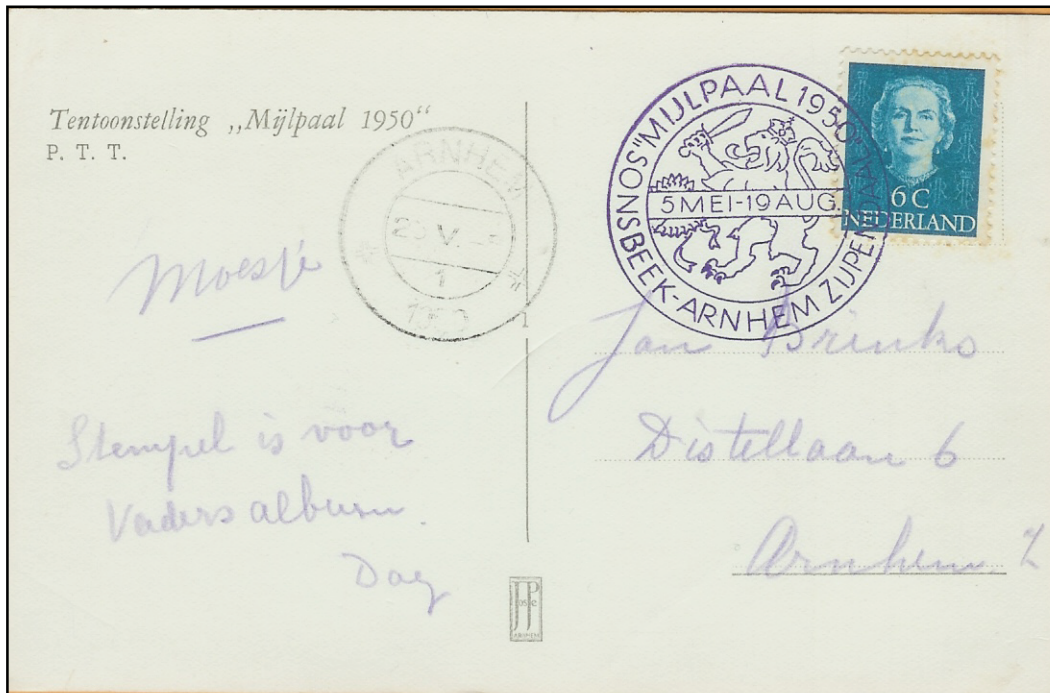 Tentoonstelling „Mijlpaal 1950“
P. T. T.
ARNHEM
V
1
1950
SONSBEEK-ARNHEM ZIJPENDAAL "MIJLPAAL 1950"
5 MEI-19 AUG.
6 C
NEDERLAND
Moesje
Stempel is voor
Vaders album.
Dag
Jan Brinks
Distellaan 6
Arnhem
JP
ARNHEM